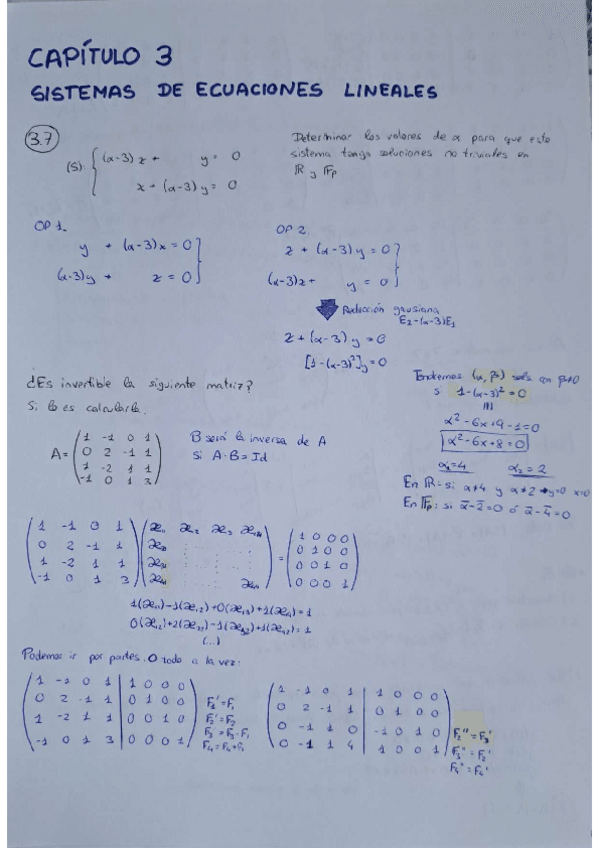 CAPÍTULO 3
SISTEMAS DE ECUACIONES LINEALES
3.7
(S): { (α-3) z + y = 0
x + (α-3) y = 0
Determinar los valores de α para que este
sistema tenga soluciones no triviales en
ℝ y 𝔽p
OP 1.
y + (α-3)x = 0 }
(α-3)y + z = 0 }
OP 2.
z + (α-3) y = 0 }
(α-3)z + y = 0 }
Reducción gausiana
E₂-(α-3)E₁
z + (α-3) y = 0
[1-(α-3)²] y = 0
Tendremos (α, β) sols con β≠0
si 1-(α-3)² = 0
α²-6x+9-1=0
α²-6x+8=0
α₁=4 α₂=2
En ℝ: si α≠4 y α≠2 → y=0 x=0
En 𝔽p: si α̅-2̅=0 ó α̅-4̅=0
¿Es invertible la siguiente matriz?
Si lo es calcularla.
A = ( 1 -1 0 1
0 2 -1 1
1 -2 1 1
-1 0 1 3 )
B será la inversa de A
Si A·B = Id
( 1 -1 0 1
0 2 -1 1
1 -2 1 1
-1 0 1 3 )
( x₁₁ x₁₂ x₁₃ x₁₄
x₂₁
x₃₁
x₄₁ x₄₄ )
= ( 1 0 0 0
0 1 0 0
0 0 1 0
0 0 0 1 )
(...)
Podemos ir por partes. O todo a la vez:
( 1 -1 0 1 | 1 0 0 0
0 2 -1 1 | 0 1 0 0
1 -2 1 1 | 0 0 1 0
-1 0 1 3 | 0 0 0 1 )
F₁'=F₁
F₂'=F₂
F₃'=F₃-F₁
F₄=F₄+F₁
( 1 -1 0 1 | 1 0 0 0
0 2 -1 1 | 0 1 0 0
0 -1 1 0 | -1 0 1 0
0 -1 1 4 | 1 0 0 1 )
F₂''=F₃'
F₃''=F₂'
F₄''=F₄'